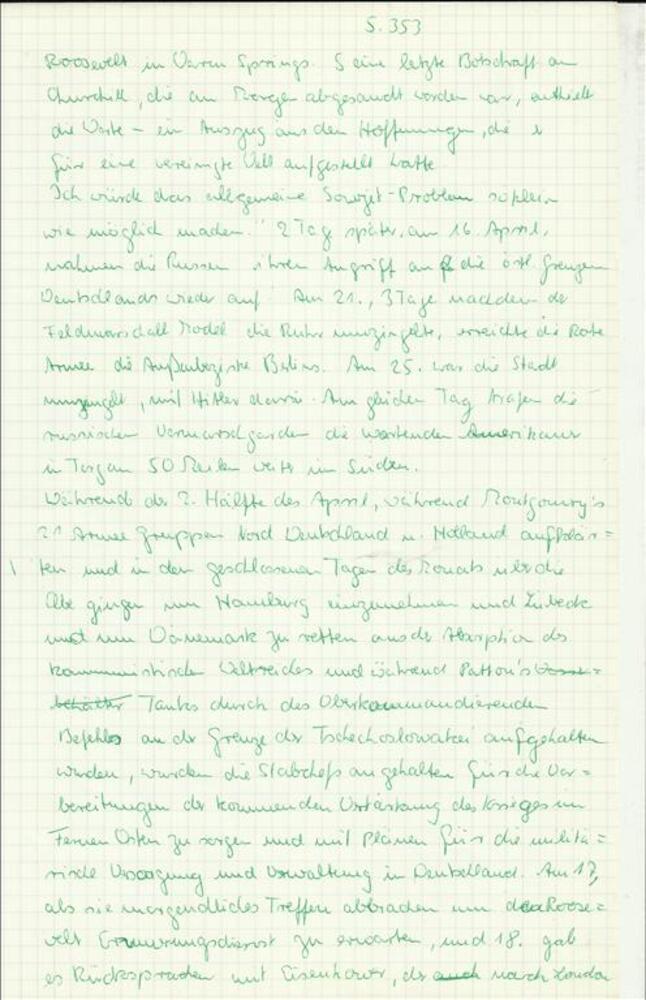 S. 353
Roosevelt in Warm Springs. Seine letzte Botschaft an
Churchill, die am Morgen abgesandt worden war, enthielt
die Worte – ein Auszug aus den Hoffnungen, die er
für eine vereinigte Welt aufgestellt hatte
Ich würde das allgemeine Sowjet-Problem so klein
wie möglich machen." 2 Tag später, am 16. April,
nahmen die Russen ihren Angriff auf die östl. Grenzen
Deutschlands wieder auf. Am 21., 3 Tage nachdem der
Feldmarschall Model die Ruhr umzingelte, erreichte die Rote
Armee die Außenbezirke Berlins. Am 25. war die Stadt
umzingelt, mit Hitler darin. Am gleichen Tag trafen die
russischen Vormarschgarden die wartenden Amerikaner
in Torgau 50 Meilen weiter im Süden.
Während der 2. Hälfte des April, während Montgomery's
21 Armee Gruppen Nord Deutschland u. Holland aufklär=
ten und in den geschlossenen Tagen des Monats über die
Elbe gingen um Hamburg einzunehmen und Lübeck
und um Dänemark zu retten aus der Absorption des
kommunistischen Weltreiches und während Patton's
Tanks durch des Oberkommandierenden
Befehls an der Grenze der Tschechoslowakei aufgehalten
wurden, wurden die Stabchefs angehalten für die Vor=
bereitungen der kommenden Verstärkung des Krieges im
Fernen Osten zu sorgen und mit Plänen für die militä=
rische Versorgung und Verwaltung in Deutschland. Am 17,
als sie morgendliches Treffen abbrachen um den Roose=
velt Erinnerungsdienst zu erwarten, und 18. gab
es Rücksprachen mit Eisenhower, der auch nach London